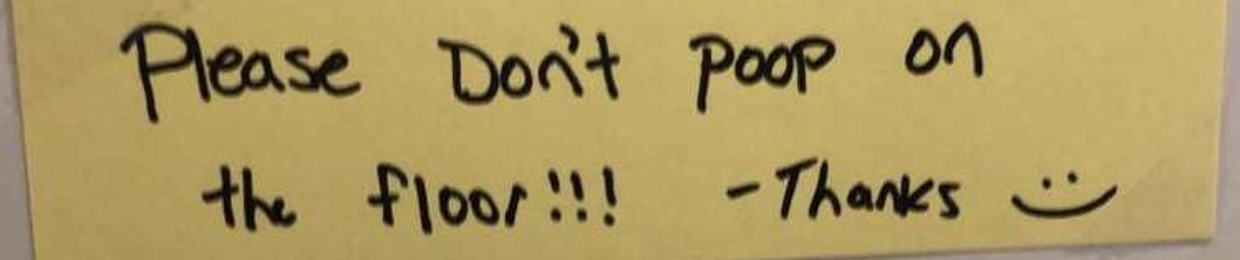 Please Don't poop on
the floor!!! -Thanks :)